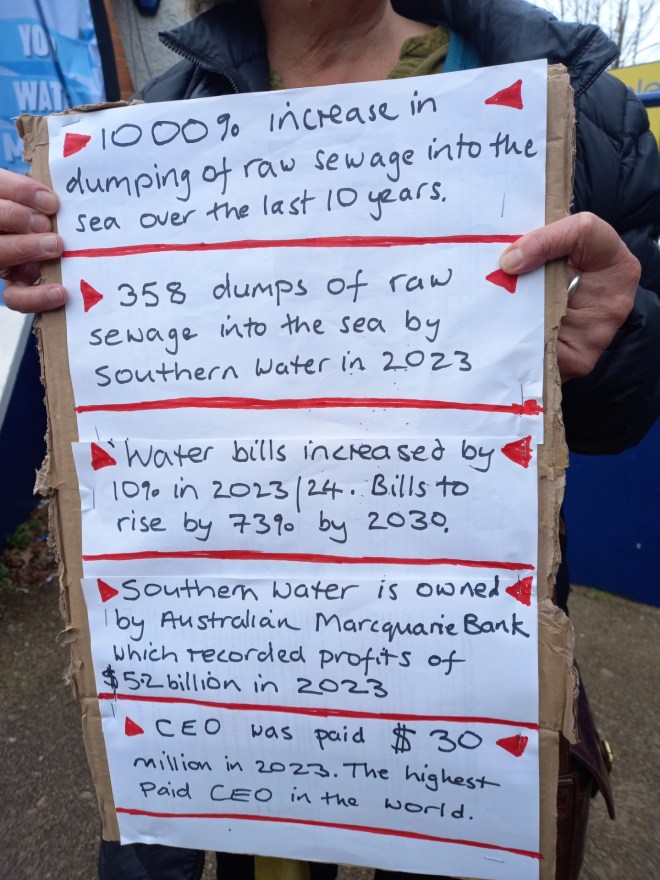 YO
WAT
1000% increase in
dumping of raw sewage into the
sea over the last 10 years.
358 dumps of raw
sewage into the sea by
Southern Water in 2023
Water bills increased by
10% in 2023/24. Bills to
rise by 73% by 2030.
Southern Water is owned
by Australian Marcquarie Bank
which recorded profits of
$5.2 billion in 2023
CEO was paid $30
million in 2023. The highest
Paid CEO in the world.